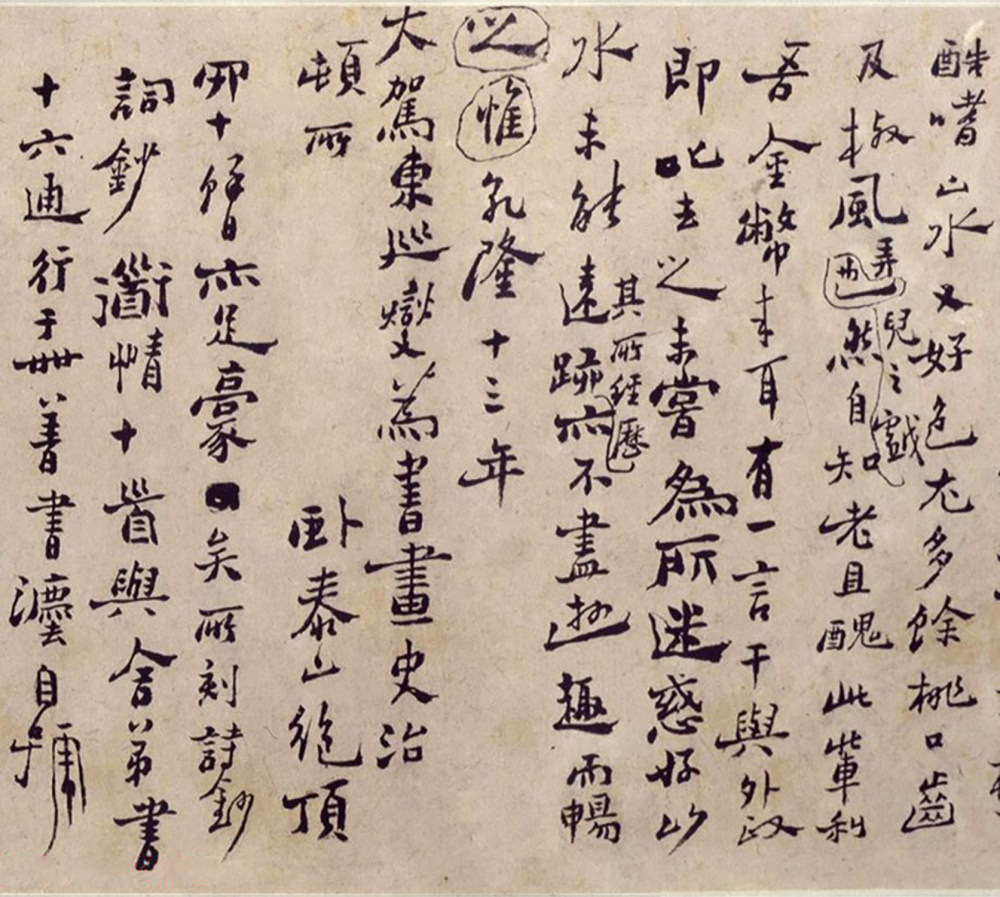 酷嗜山水又好色尤多餘桃口齒
及椒風弄兒之戲然自知老且醜此輩利
吾金幣來耳有一言干與外政
即叱去之未嘗為所迷惑好山
水未能遠跡其所經歷亦不盡遊趣而暢
之惟乾隆十三年
大駕東巡燮為書畫史治
頓所臥泰山絕頂
四十餘日亦足豪矣所刻詩鈔
詞鈔道情十首與舍弟書
十六通行于世善書法自號